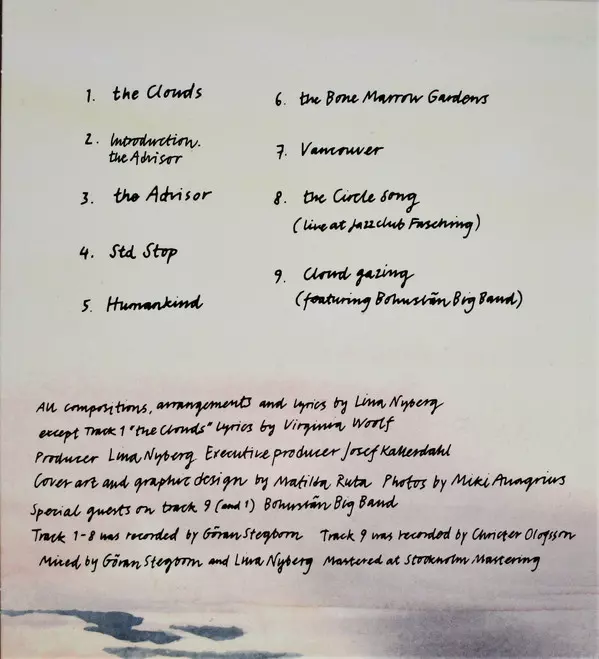 1. the Clouds
2. Introduction.
the Advisor
3. the Advisor
4. Std Stop
5. Humankind
6. the Bone Marrow Gardens
7. Vancouver
8. the Circle Song
(live at Jazzclub Fasching)
9. Cloud gazing
(featuring Bohuslän Big Band)
All compositions, arrangements and lyrics by Lina Nyberg
except Track 1 "the Clouds" lyrics by Virginia Woolf
Producer Lina Nyberg Executive producer Josef Kallerdahl
Cover art and graphic design by Matilda Ruta Photos by Miki Anagrius
Special guests on track 9 (and 1) Bohuslän Big Band
Track 1-8 was recorded by Göran Stegborn Track 9 was recorded by Christer Olofsson
Mixed by Göran Stegborn and Lina Nyberg Mastered at Stockholm Mastering